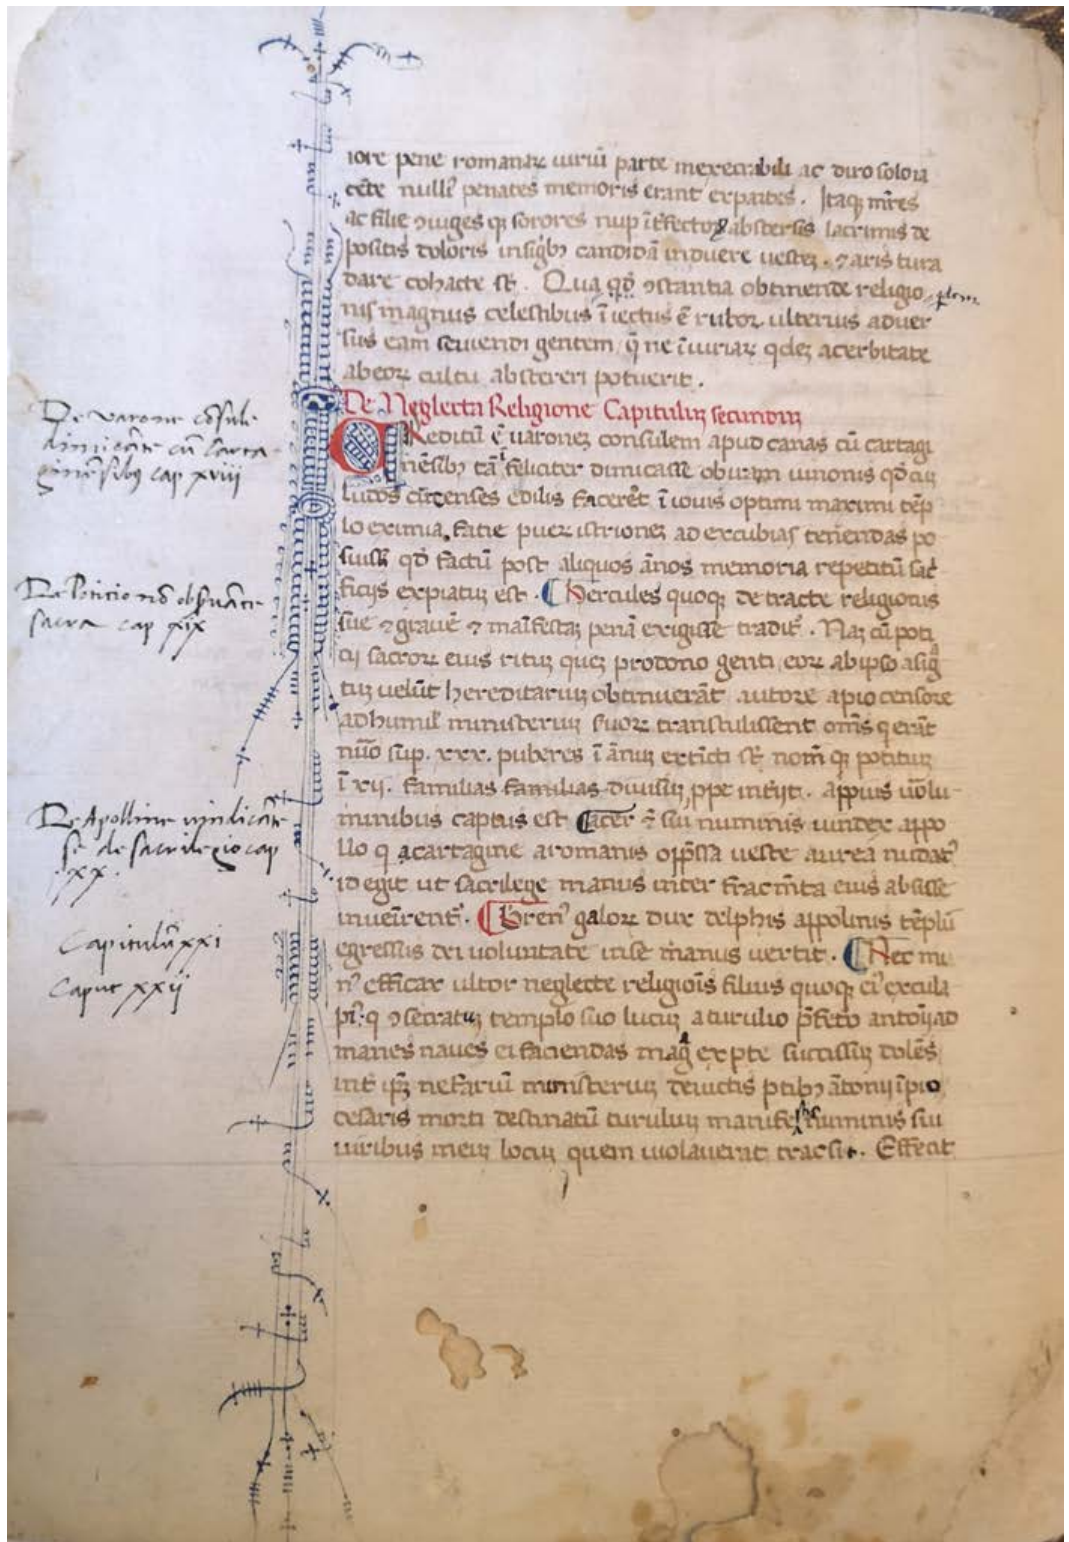 iore pene romanaꝝ uiriū parte inexecrabili ac diro soloia
cēte nulli penates memoris erant expartes . Itaqꝫ mr̄es
ac filie ꝯiuges qꝫ sorores nup īt̄fectoꝝ abstersis lacrimis de
positis doloris insigibꝫ candidā induere uesteꝫ . ⁊ aris tura
dare cohacte sт̄ . Qua qd̄ ꝯstantia obtinende religio
nis magnus celestibus ī iectus ē ruboꝝ ulterius aduer
sus eam seuiendi gentem q̄ ne īiuriaꝝ qdeꝫ acerbitate
ab eoꝝ cultu abstereri potuerit .
De Neglecta Religione Capituluꝫ secunduꝫ
CReditū ē uaroneꝫ consulem apud canas cū cartagi
nēsibꝫ tā īfeliciter dimicasse ob iram iunonis qd̄ cuꝫ
ludos circenses edilis faceret ī iouis optimi maximi tēp
lo eximia facie pueꝝ istrioneꝫ ad excubias tenendas po
suisset qd̄ factū post aliquos ānos memoria repetitū sac̄
ficijs expiatuꝫ est . Hercules quoqꝫ detracte religionis
sue ⁊ gravē ⁊ māifestaꝫ penā exigisse tradit̄ . Naꝫ cū poti
cij sacroꝝ eius rituꝫ queꝫ prodono genti eoꝝ ab ipso asig
tuꝫ uelūt hereditariuꝫ obtinuerāt autore apio censore
ad humil̄ ministeriuꝫ suoꝝ transtulissent om̄s q erāt
nūo sup̄ . xxx . puberes ī ānuꝫ extīcti sт̄ nom̄ qꝫ potitiuꝫ
ī xij . familias familias diuisuꝫ ppe int̄ijt . appius uōlu
minibus captus est acer ⁊̄ sui numinis uindex appo
llo q acartagine aromanis opp̄ssa ueste aurea nudat᷒
id egit ut sacrilege manus inter fracm̄ta eius abscisse
inueīrent᷒ . Bren᷒ galoꝝ dux delphis appolinis tēplū
egressus dei uoluntate in se manus uertit . Nec mi
n᷒ efficax ultor neglecte religiōis filius quoqꝫ ei᷒ excula
pi᷒ q ꝯsecratuꝫ templo suo lucuꝫ a turulio p̄feto antoīj ad
manes naues ei faciendas maḡ ex pte succissuꝫ dolēs
int̄ ipꝫ nefariū ministeriuꝫ deuictis ptibꝫ ātonij īpio
cesaris morti destinatū turuliuꝫ manifes numinis sui
uiribus in euꝫ locuꝫ quem uiolauerat traxsit . Effecit
De varone cōsule
dimicāte cū Carta
ginēsibꝫ cap xviii
De Poticio nō obseruāte
sacra cap xix
De Apolline vindicāte
se de sacrilegio cap
xx.
Capitulū xxi
Caput xxij